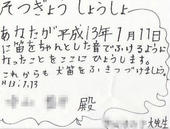 そつぎょうしょうしょ
あなたが平成13年1月11日
に笛をちゃんとした音でふけるように
なったことをここにひょうします。
これからも犬笛をふきつづけましょう。
H13.1.13
殿
大先生